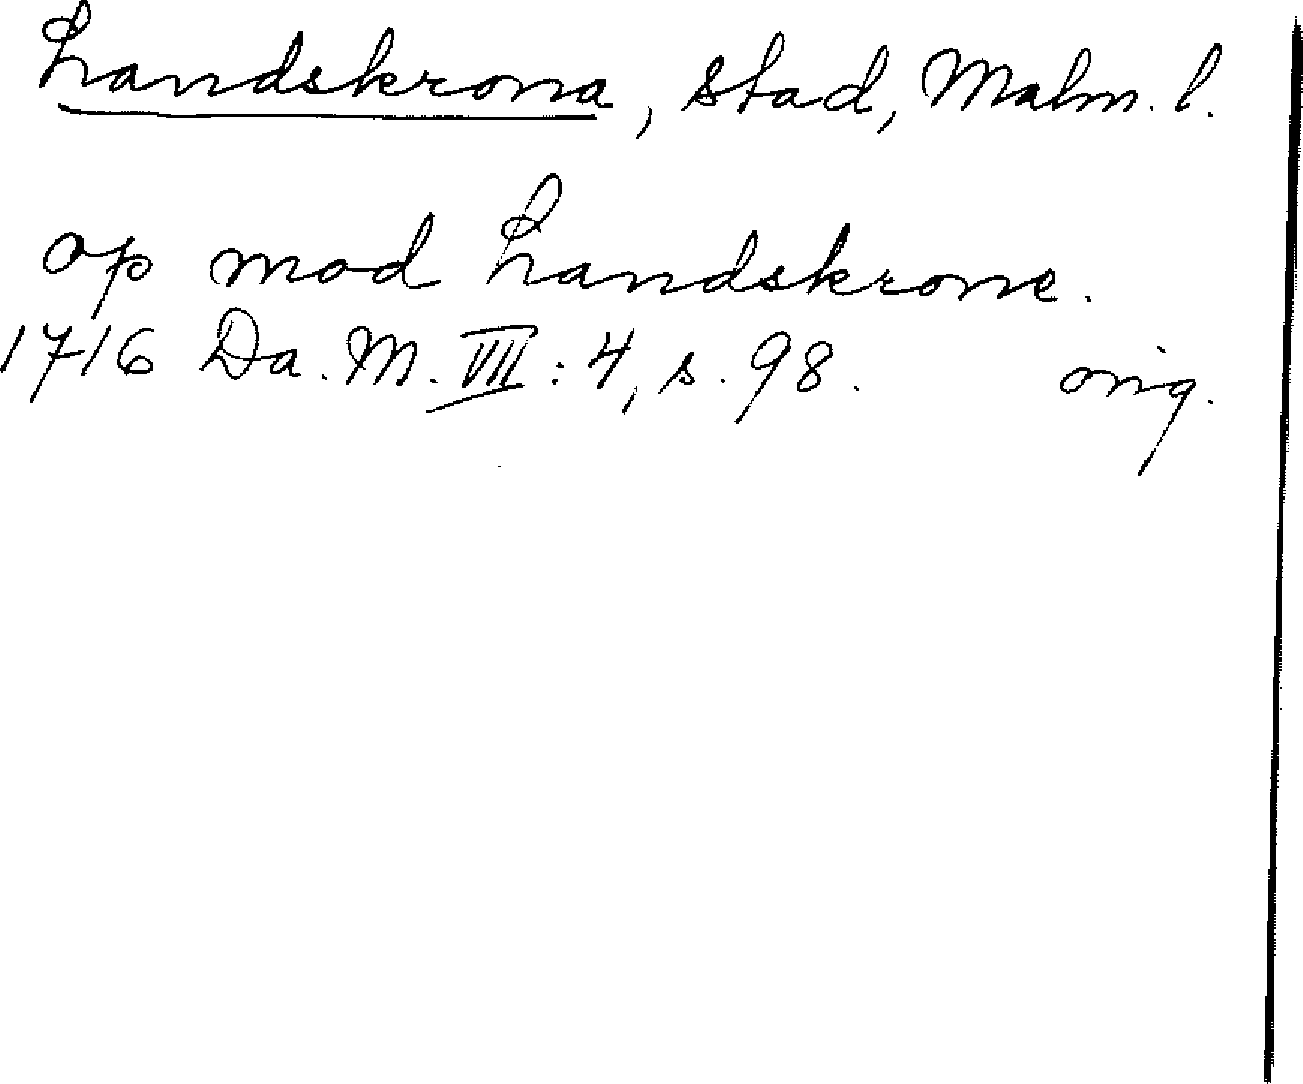 Landskrona, stad, Malm. l.
op mod Landskrone.
1716 Da. M. VIII: 4, s. 98. orig.